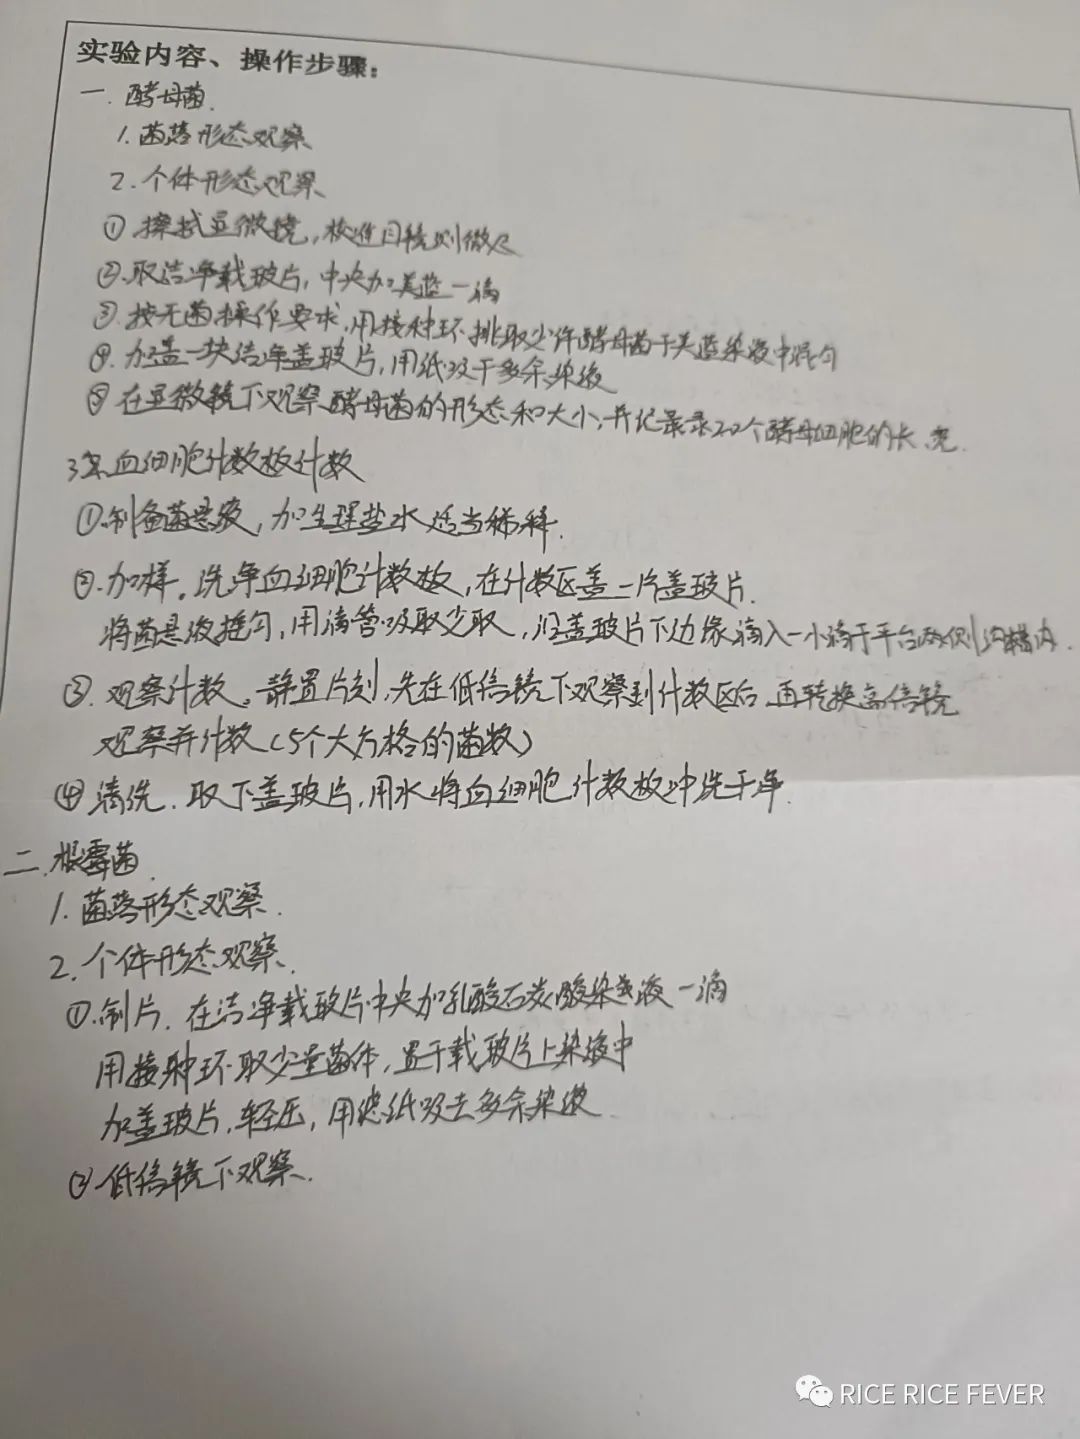 实验内容、操作步骤：
一. 酵母菌.
1. 菌落形态观察
2. 个体形态观察
① 擦拭显微镜，校准目镜测微尺
② 取洁净载玻片，中央加美蓝一滴
③ 按无菌操作要求，用接种环挑取少许酵母菌于美蓝染液中混匀
④. 加盖一块洁净盖玻片，用纸吸干多余染液
⑤ 在显微镜下观察酵母菌的形态和大小，并记录录20个酵母细胞的长、宽.
3. 血细胞计数板计数
①.制备菌悬液，加生理盐水适当稀释.
②.加样。洗净血细胞计数板，在计数区盖一片盖玻片.
将菌悬液摇匀，用滴管吸取少取，沿盖玻片下边缘滴入一小滴于平台两侧沟槽内.
③. 观察计数。静置片刻，先在低倍镜下观察到计数区后，再转换高倍镜
观察并计数（5个大方格的菌数）
④ 清洗. 取下盖玻片，用水将血细胞计数板冲洗干净.
二. 根霉菌.
1. 菌落形态观察.
2. 个体形态观察.
①.制片. 在洁净载玻片中央加乳酸石炭酸染色液一滴
用接种环取少量菌体，置于载玻片上染液中
加盖玻片，轻压，用滤纸吸去多余染液.
② 低倍镜下观察.
RICE RICE FEVER